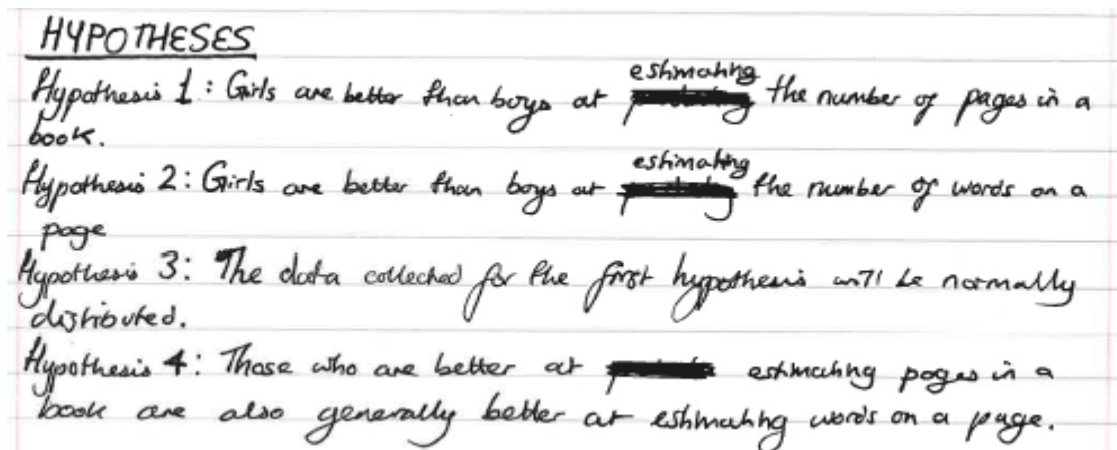 HYPOTHESES
Hypothesis 1: Girls are better than boys at estimating the number of pages in a
book.
Hypothesis 2: Girls are better than boys at estimating the number of words on a
page
Hypothesis 3: The data collected for the first hypothesis will be normally
distributed.
Hypothesis 4: Those who are better at estimating pages in a
book are also generally better at estimating words on a page.